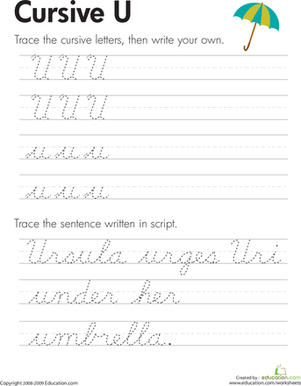 Cursive U
Trace the cursive letters, then write your own.
U U U
U U U
u u u
u u u
Trace the sentence written in script.
Ursula urges Uri
under her
umbrella.
Copyright 2008-2009 Education.com
Created by : education.com
www.education.com/worksheets